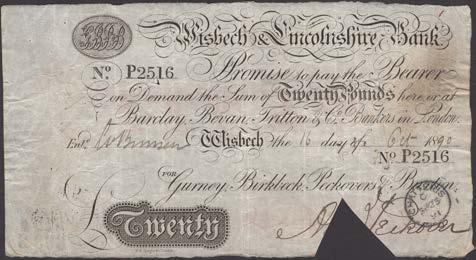 Wisbech & Lincolnshire Bank
No. P2516 Promise to pay the Bearer
on Demand the Sum of Twenty Pounds here or at
Barclay, Bevan, Tritton & Co. Bankers in London.
Entd. Wisbech the 16 day of Oct 1890
No P2516
FOR Gurney, Birkbeck, Peckovers & Buxton.
£ Twenty
Peckover